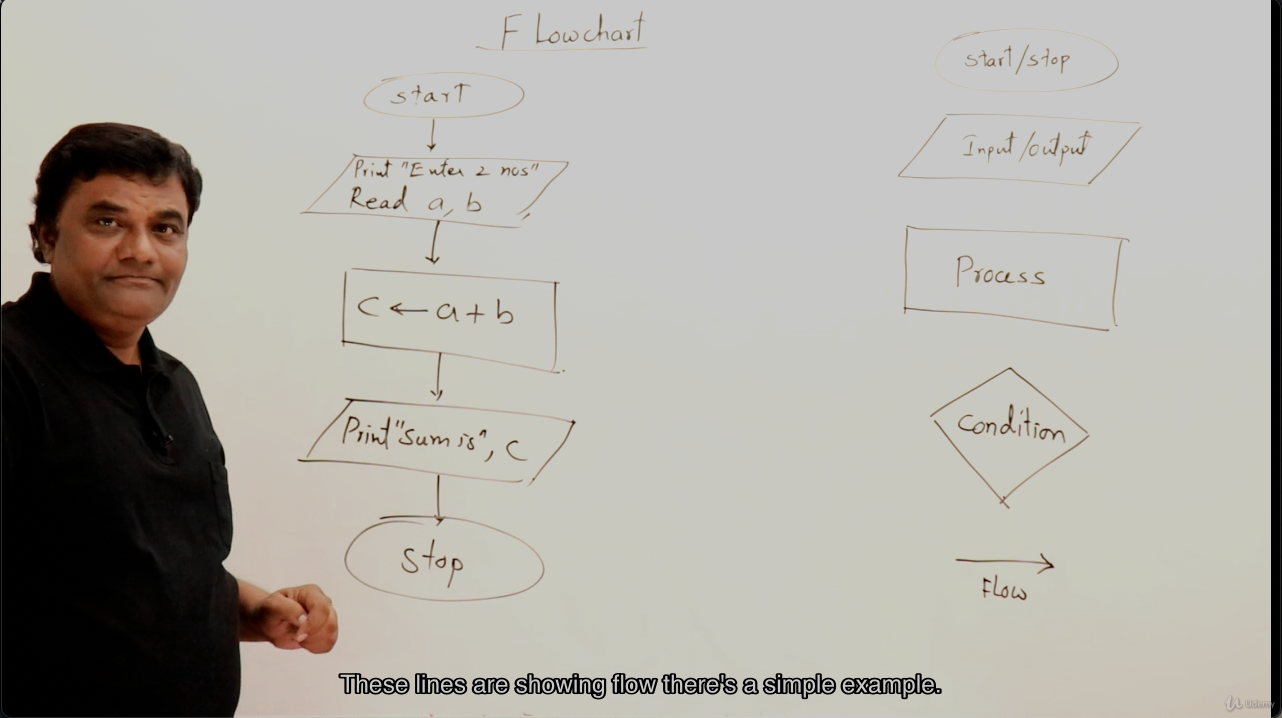 F Lowchart
start
Print "Enter 2 nos"
Read a, b
C ← a + b
Print "sum is", C
stop
start/stop
Input/output
Process
condition
Flow
These lines are showing flow there's a simple example.
Udemy